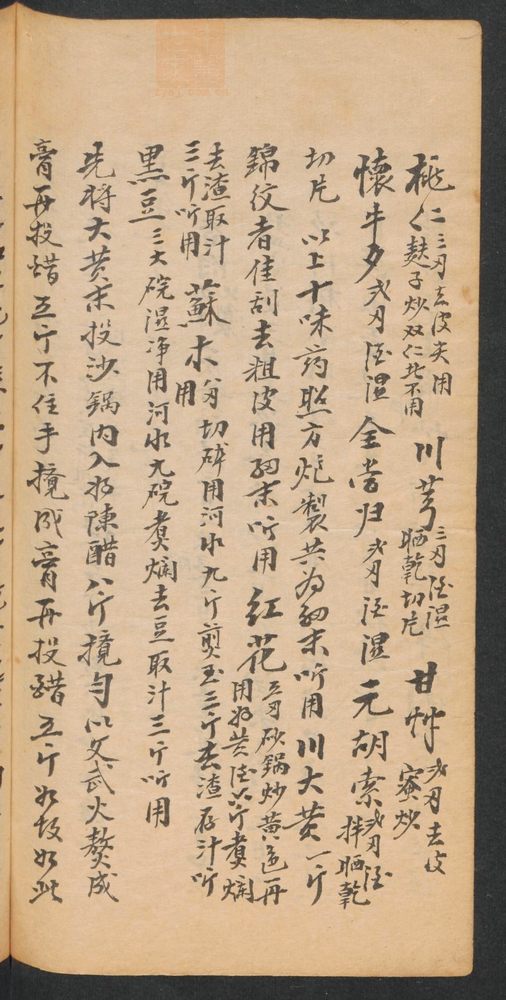 桃仁 三刄去皮尖用 麩子炒双仁比不用 川芎 三刄酒湿晒乾切片 甘艸 弍刄去皮蜜炒
懷牛夕弍刄酒湿 全當归弍刄酒湿 元胡索弍刄酒拌晒乾
切片 以上十味药照方炮製共为細末听用 川大黄一斤
錦紋者佳刮去粗皮用細末听用 紅花 五刄砂鍋炒黄色再用好黄酒六斤煮爛
去渣取汁三斤听用 蘇木 切碎用河水九斤煎至三斤去渣存汁听用
黑豆三大碗湿净用河水九碗煮爛去豆取汁三斤听用
先將大黄末投沙鍋内入好陳醋八斤攪匀以文武火熬成
膏再投醋五斤不住手攪成膏再投醋五斤如故如此